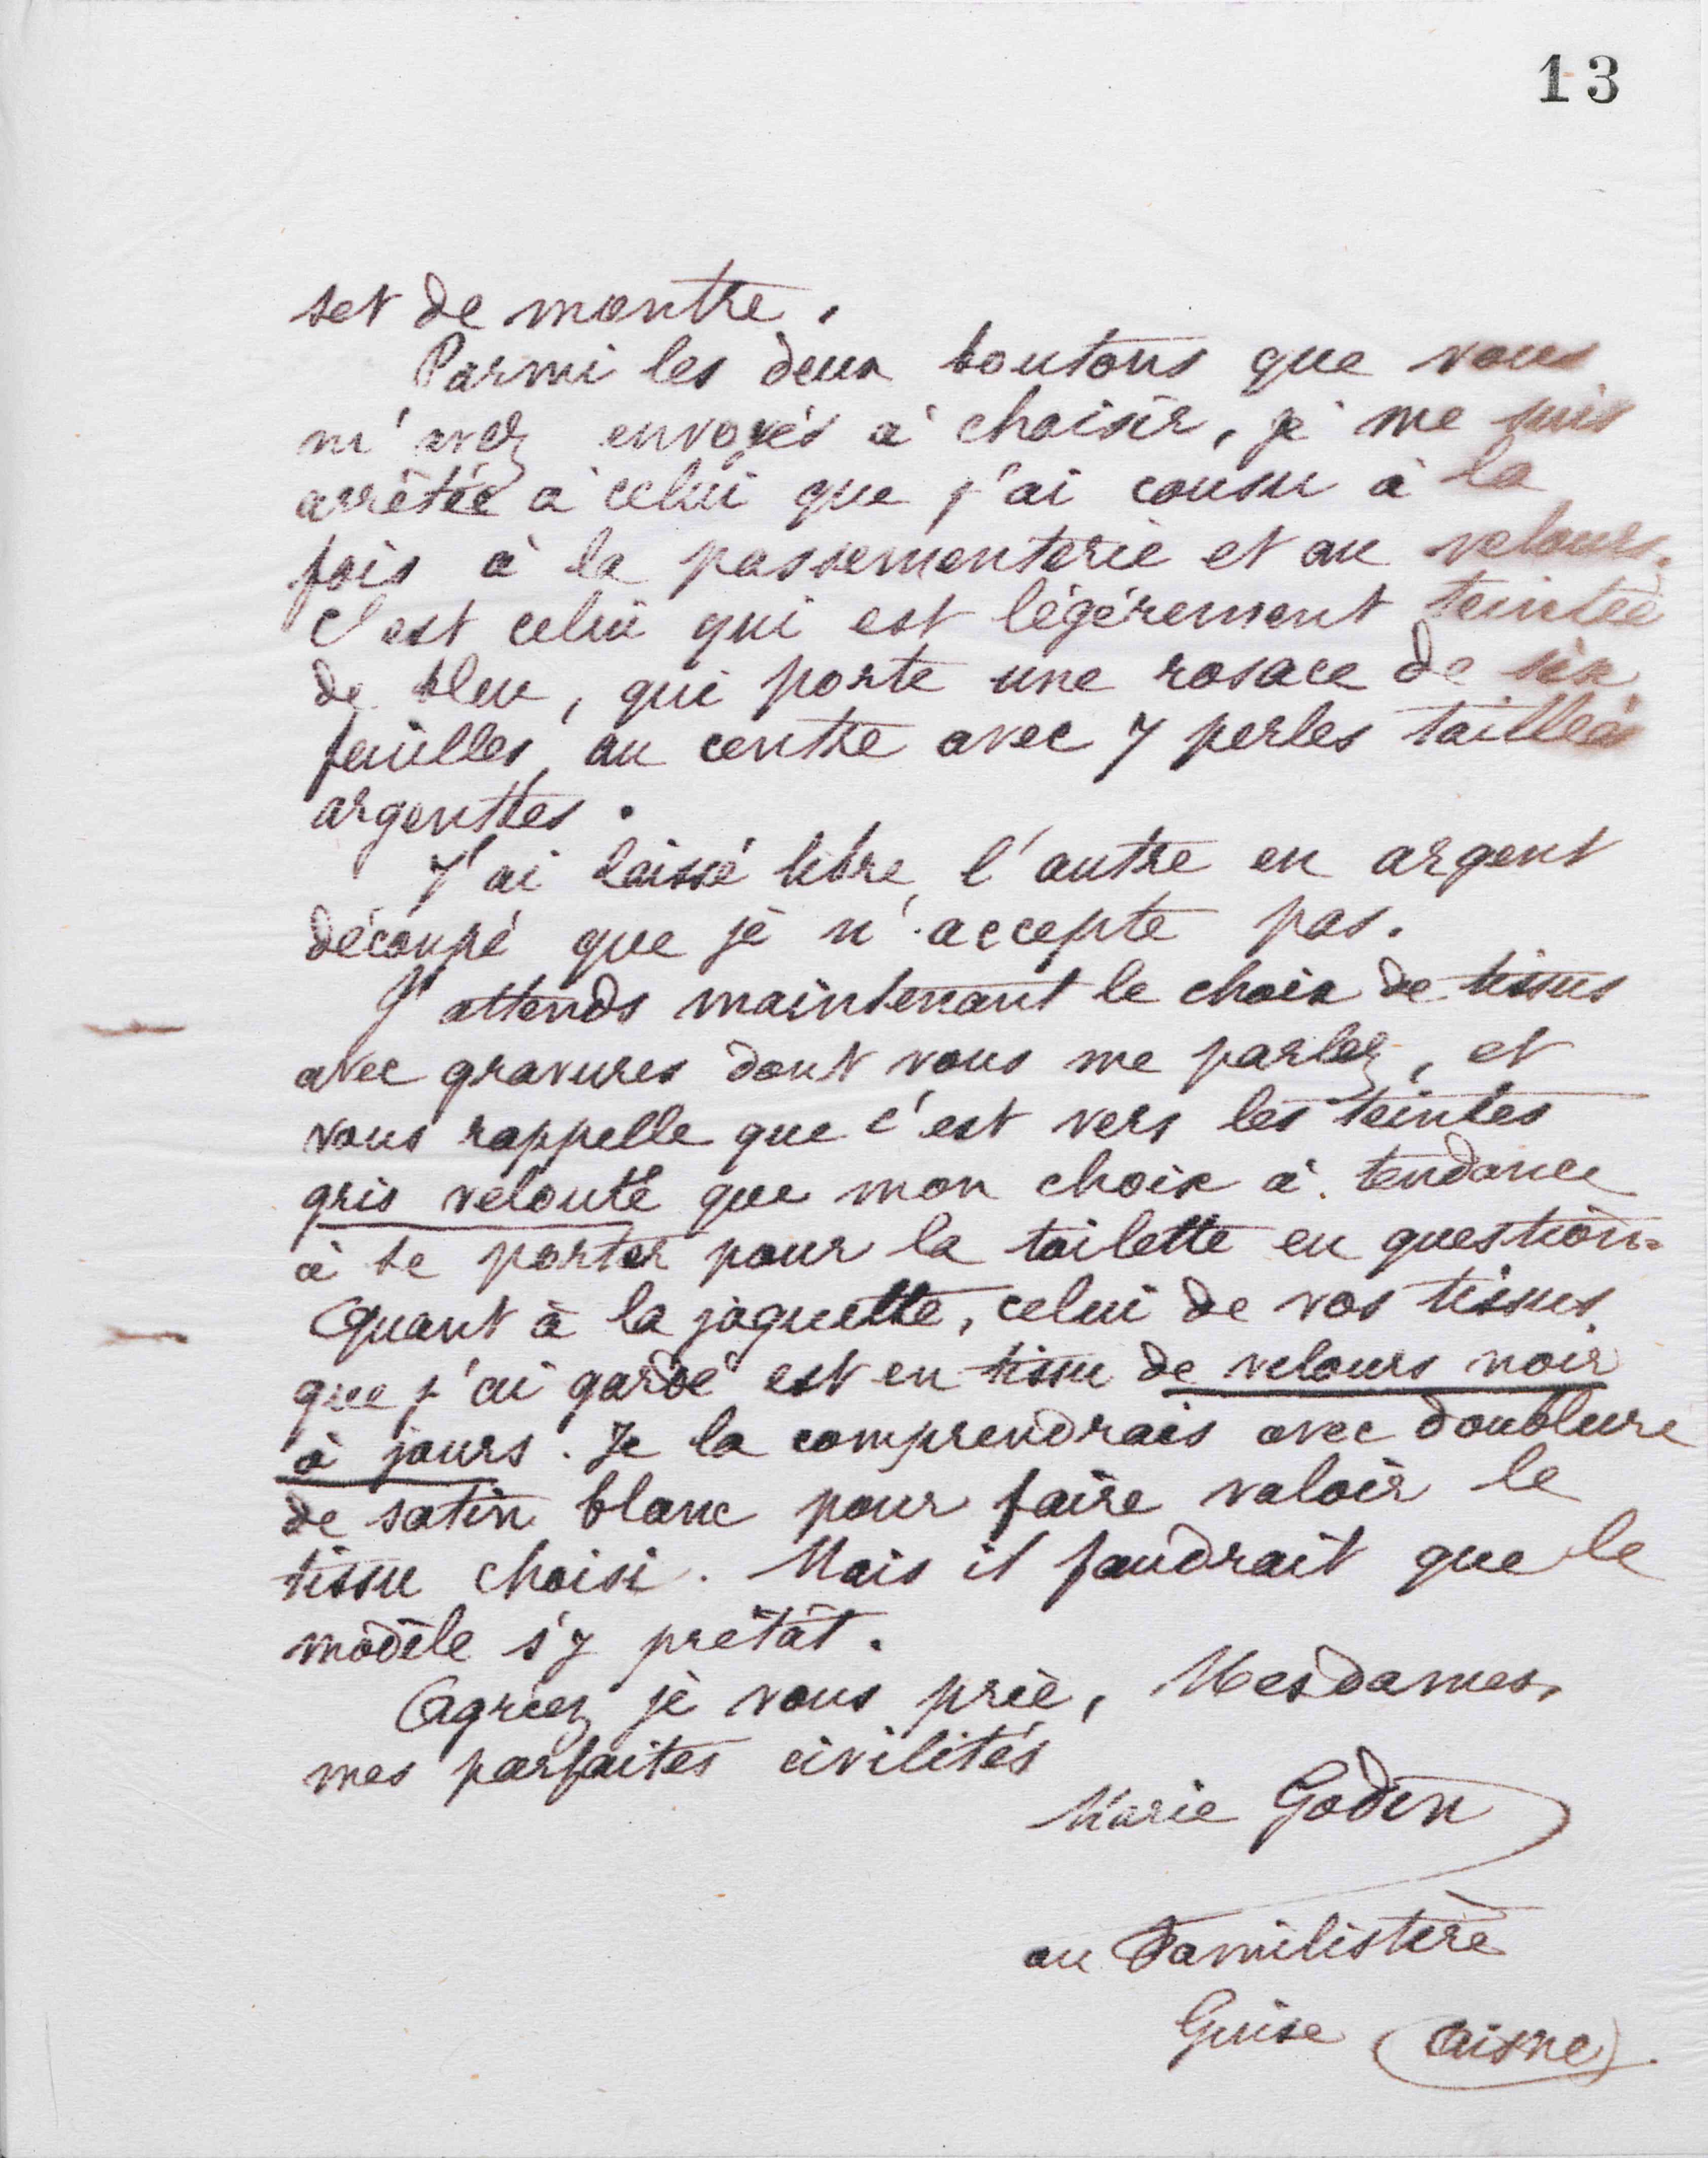 13
set de montre.
Parmi les deux boutons que vous
m'avez envoyés à choisir, je me suis
arrêtée à celui que j'ai cousu à la
fois à la passementerie et au velours.
C'est celui qui est légèrement teinté
de bleu, qui porte une rosace de six
feuilles au centre avec 7 perles taillées
argenttes.
J'ai laissé libre l'autre en argent
découpé que je n'accepte pas.
J'attends maintenant le choix de tissus
avec gravures dont vous me parlez, et
vous rappelle que c'est vers les teintes
gris velouté que mon choix a tendance
à se porter pour la toilette en question.
Quant à la jaquette, celui de vos tissus
que j'ai gardé est en tissu de velours noir
à jours. Je la comprendrais avec doublure
de satin blanc pour faire valoir le
tissu choisi. Mais il faudrait que le
modèle s'y prêtât.
Agréez je vous prie, Mesdames,
mes parfaites civilités
Marie Godin
au Familistère
Guise (Aisne).